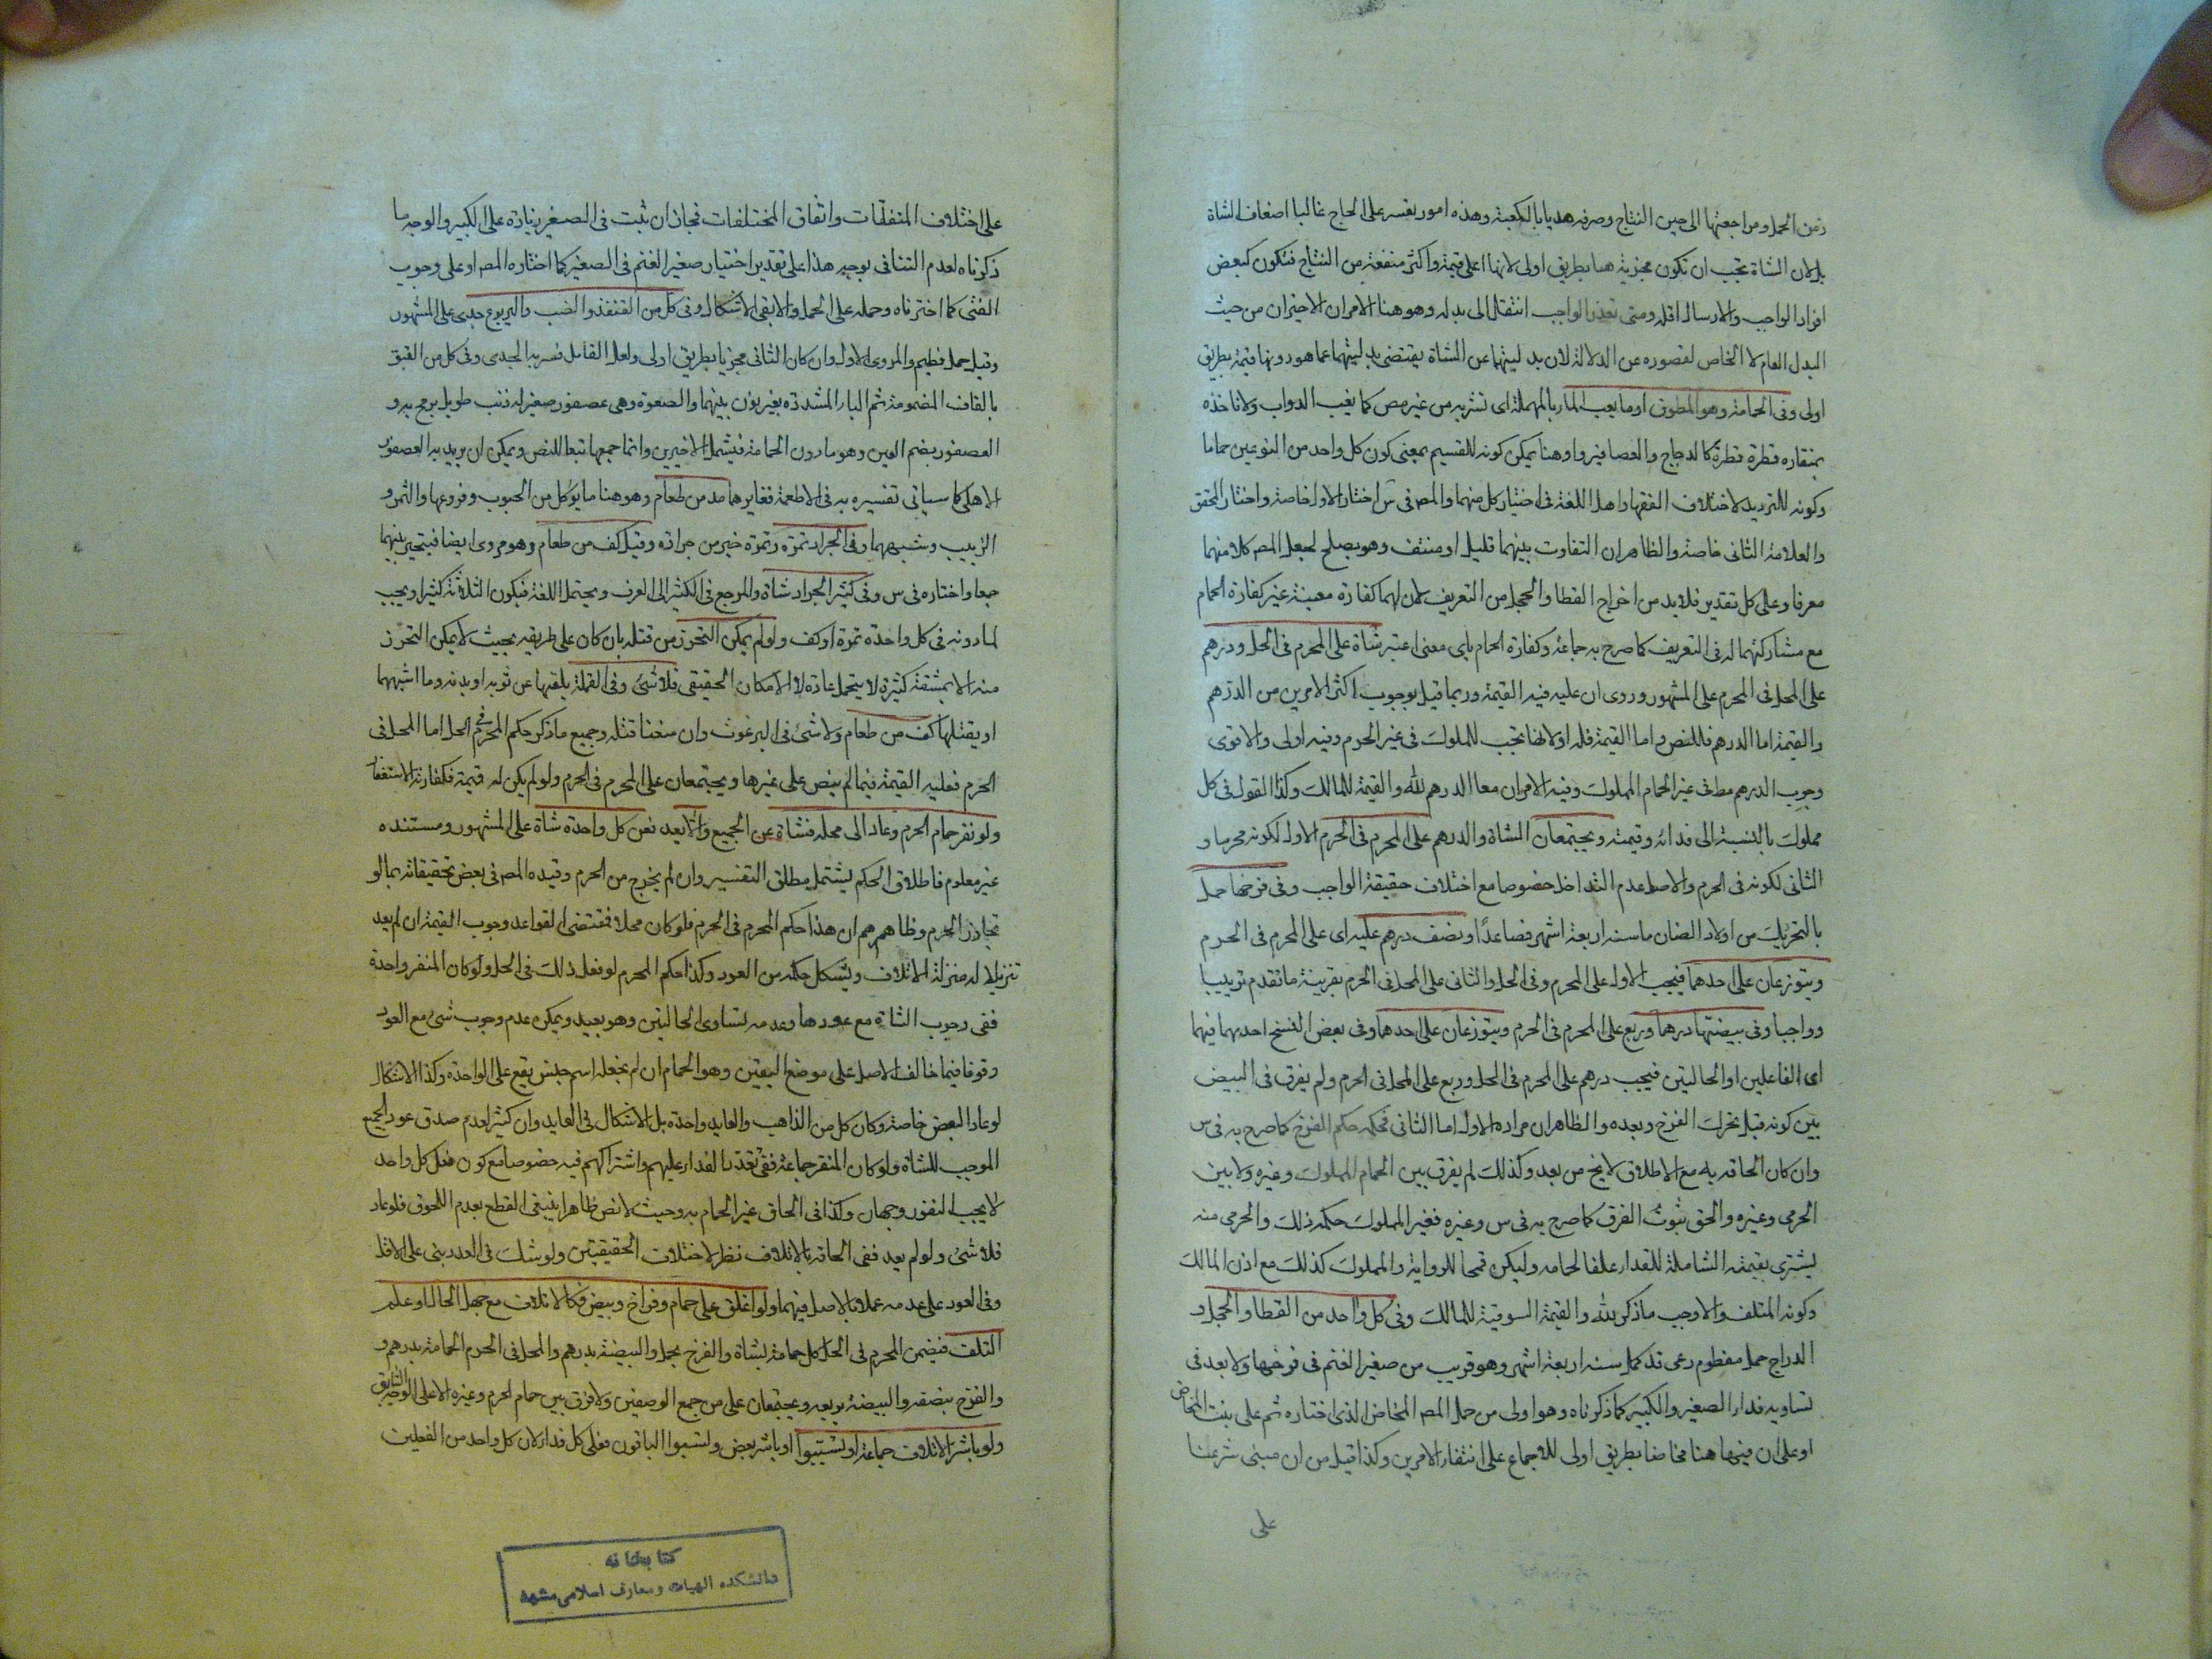 زمن الحمل ومراجعتها الى حين النتاج وصرفه هديا بالكعبة وهذه امور يفسر على الحاج غالبا اضعاف الشاة
بل لان الشاة تجب ان تكون مجزية هنا بطريق اولى لانها اعلى قيمة واكثر منفعة من النتاج فتكون كبعض
افراد الواجب والارسال اقله ومتى تعذر الواجب انتقل الى بدله وهو هنا الامران الاخيران من حيث
البدل العام لا الخاص لقصوره عن الدلالة لان بدليتهما عن الشاة يقتضى بدليتهما عما هو دونها قيمة بطريق
اولى وفى الحمامة وهو المطوق او ما يعب الماء بالمهملة اى تشربه من غير مص كما يعب الدواب ولا تاخذه
بمنقاره قطرة قطرة كالدجاج والعصافير واو هنا يمكن كونه للتقسيم بمعنى كون كل واحد من النوعين حماما
وكونه للترديد لاختلاف الفقهاء واهل اللغة فى اختيار كل منهما والمص فى س اختار الاول خاصة واختار المحقق
والعلامة الثانى خاصة والظاهر ان التفاوت بينهما قليل او منتف وهو يصلح لجعل المص كلا منهما
معرفا وعلى كل تقدير فلا بد من اخراج القطا والحجل من التعريف لان لهما كفارة معينة غير كفارة الحمام
مع مشاركتهما له فى التعريف كما صرح به جماعة وكفارة الحمام باى معنى اعتبر شاة على المحرم فى الحل ودرهم
على المحل فى الحرم على المشهور وروى ان عليه فيه القيمة وربما قيل بوجوب اكثر الامرين من الدرهم
والقيمة اما الدرهم فللنص واما القيمة فله او لانها تجب للمملوك فى غير الحرم وفيه اولى والاقوى
وجوب الدرهم مط فى غير الحمام المملوك وفيه الامران معا الدرهم لله والقيمة للمالك وكذا القول فى كل
مملوك بالنسبة الى فدائه وقيمته ويجتمعان الشاة والدرهم على المحرم فى الحرم الاول لكونه محرما و
الثانى لكونه فى الحرم والاصل عدم التداخل خصوصا مع اختلاف حقيقة الواجب وفى فرخها حمل
بالتحريك من اولاد الضان ما سنه اربعة اشهر فصاعدًا او نصف درهم عليه اى على المحرم فى الحرم
ويتوزعان على احدهما فيجب الاول على المحرم وفى الحل والثانى على المحل فى الحرم بقرينة ما تقدم ترتيبا
وواجبا وفى بيضتها درهما وربع على المحرم فى الحرم ويتوزعان على احدهما وفى بعض النسخ احدهما فيهما
اى الفاعلين او الحالتين فيجب درهم على المحرم فى الحل وربع على المحل فى الحرم ولم يفرق فى البيض
بين كونه قبل تحرك الفرخ وبعده والظاهر ان مراده الاول اما الثانى فحكمه حكم الفرخ كما صرح به فى س
وان كان الحاقه به مع الاطلاق لا يخ من بعد وكذلك لم يفرق بين الحمام المملوك وغيره ولا بين
الحرمى وغيره والحق ثبوت الفرق كما صرح به فى س وغيره فغير المملوك حكمه ذلك والحرمى منه
يشترى بقيمته الشاملة للفداء علفا لحمامه وليكن قمحا للرواية والمملوك كذلك مع اذن المالك
وكونه المتلف والاوجب ما ذكر لله والقيمة السوقية للمالك وفى كل واحد من القطا والحجل و
الدراج حمل مفطوم رعى قد كمل سنه اربعة اشهر وهو قريب من صغير الغنم فى فرخها ولا بعد فى
تساويه فداء الصغير والكبير كما ذكرناه وهو اولى من حمل المص المخاض الذى اختاره ثم على بنت المخاض
او على ان فيها هنا مخاضا بطريق اولى للاجماع على انتفاء الامرين وكذا قيل من ان مبنى شرعنا
على
على اختلاف المتفقات واتفاق المختلفات فجاز ان تثبت فى الصغير زيادة على الكبير والوجه ما
ذكرناه لعدم التنافى بوجه هذا على تقدير اختيار صغير الغنم فى الصغير كما اختاره المص او على وجوب
الفتى كما اخترناه وحمله على الحمل والا بقى الاشكال وفى كل من القنفذ والضب واليربوع جدى على المشهور
وقيل حمل فطيم والمروى الاول وان كان الثانى مجزيا بطريق اولى ولعل القائل فسر به الجدى وفى كل من القبرة
بالقاف المضمومة ثم الباء المشددة بغير نون بينهما والصعوة وهى عصفور صغير له ذنب طويل يرمح به و
العصفور بضم العين وهو ما دون الحمامة فيشمل الاخيرين وانما جمعها تبعا للنص ويمكن ان يريد به العصفور
الاهلى كما سياتى تفسيره به فى الاطعمة فغايرهما مد من طعام وهو هنا ما يوكل من الحبوب وفروعها والثمر و
الزبيب وشبههما وفى الجراد تمرة وتمرة خير من جرادة وقيل كف من طعام وهو مروى ايضا فيتخير بينهما
جمعا واختاره فى س وفى كثير الجراد شاة والمرجع فى الكثير الى العرف ويحتمل اللغة فيكون الثلاثة كثيرا ويجب
لما دونه فى كل واحدة تمرة او كف ولو لم يمكن التحرز من قتله بان كان على طريقه بحيث لا يمكن التحرز
منه الا بمشقة كثيرة لا يتحمل عادة لا الامكان الحقيقى فلا شئ وفى القملة يلقيها عن ثوبه او بدنه وما اشبههما
او يقتلها كف من طعام ولا شئ فى البرغوث وان منعنا قتله وجميع ما ذكر حكم المحرم فى الحل اما المحل فى
الحرم فعليه القيمة فيما لم ينص على غيرها ويجتمعان على المحرم فى الحرم ولو لم يكن له قيمة فكفارته الاستغفار
ولو نفر حمام الحرم وعاد الى محله فشاة عن الجميع والا يعد فعن كل واحدة شاة على المشهور ومستنده
غير معلوم فاطلاق الحكم يشتمل مطلق التنفير وان لم يخرج من الحرم وقيده المص فى بعض تحقيقاته بما لو
تجاوز الحرم وظاهرهم ان هذا حكم المحرم فى الحرم فلو كان محلا فمقتضى القواعد وجوب القيمة ان لم يعد
تنزيلا له منزلة الاتلاف ويشكل حكمه من العود وكذا حكم المحرم لو فعل ذلك فى الحل ولو كان المنفر واحدة
ففى وجوب الشاة مع عودها وعدمه تساوى الحالتين وهو بعيد ويمكن عدم وجوب شئ مع العود
وقوفا فيما خالف الاصل على موضع اليقين وهو الحمام ان لم نجعله اسم جنس يقع على الواحدة وكذا الاشكال
لو عاد البعض خاصة وكان كل من الذاهب والعايد واحدة بل الاشكال فى العايد وان كثر لعدم صدق عود الجميع
الموجب للشاة ولو كان المنفر جماعة ففى تعدد الفداء عليهم واشتراكهم فيه خصوصا مع كون فعل كل واحد
لا يجب النفور وجهان وكذا فى الحاق غير الحمام به وحيث لا نص ظاهرا ينبغى القطع بعدم اللحوق فلو عاد
فلا شئ ولو لم يعد ففى الحاقه بالاتلاف نظر لاختلاف الحقيقتين ولو شك فى العدد بنى على الاقل
وفى العود على عدمه عملا بالاصل فيهما ولو اغلق على حمام وفراخ وبيض فكالاتلاف مع جهل الحال او علم
التلف فيضمن المحرم فى الحل كل حمامة بشاة والفرخ بحمل والبيضة بدرهم والمحل فى الحرم الحمامة بدرهم و
والفرخ بنصفه والبيضة بربعه ويجتمعان على من جمع الوصفين ولا فرق بين حمام الحرم وغيره الا على الوجه السابق
ولو باشر الاتلاف جماعة او تسببوا او باشر بعض وتسببوا الباقون فعلى كل فداء لان كل واحد من الفعلين
كتابخانه
دانشكده الهيات ومعارف اسلامى مشهد